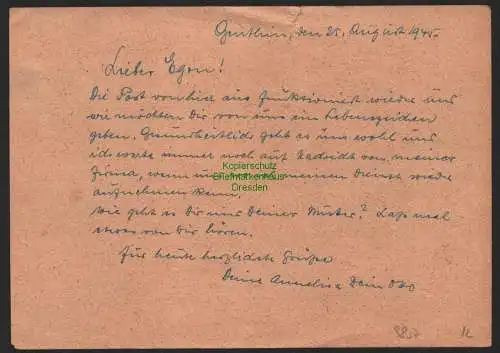 Genthin, den 25. August 1945.
Lieber Egon!
Die Post von hier aus funktioniert wieder und
wir möchten Dir von uns ein Lebenszeichen
geben. Gesundheitlich geht es uns wohl und
ich warte immer noch auf Nachricht von meiner
Firma, wenn ich meinen Dienst wieder
aufnehmen kann.
Wie geht es Dir und Deiner Mutter? Lass mal
etwas von Dir hören.
Für heute herzlichste Grüsse
Deine Annelise Dein Otto
Kopierschutz
Briefmarkenhaus
Dresden